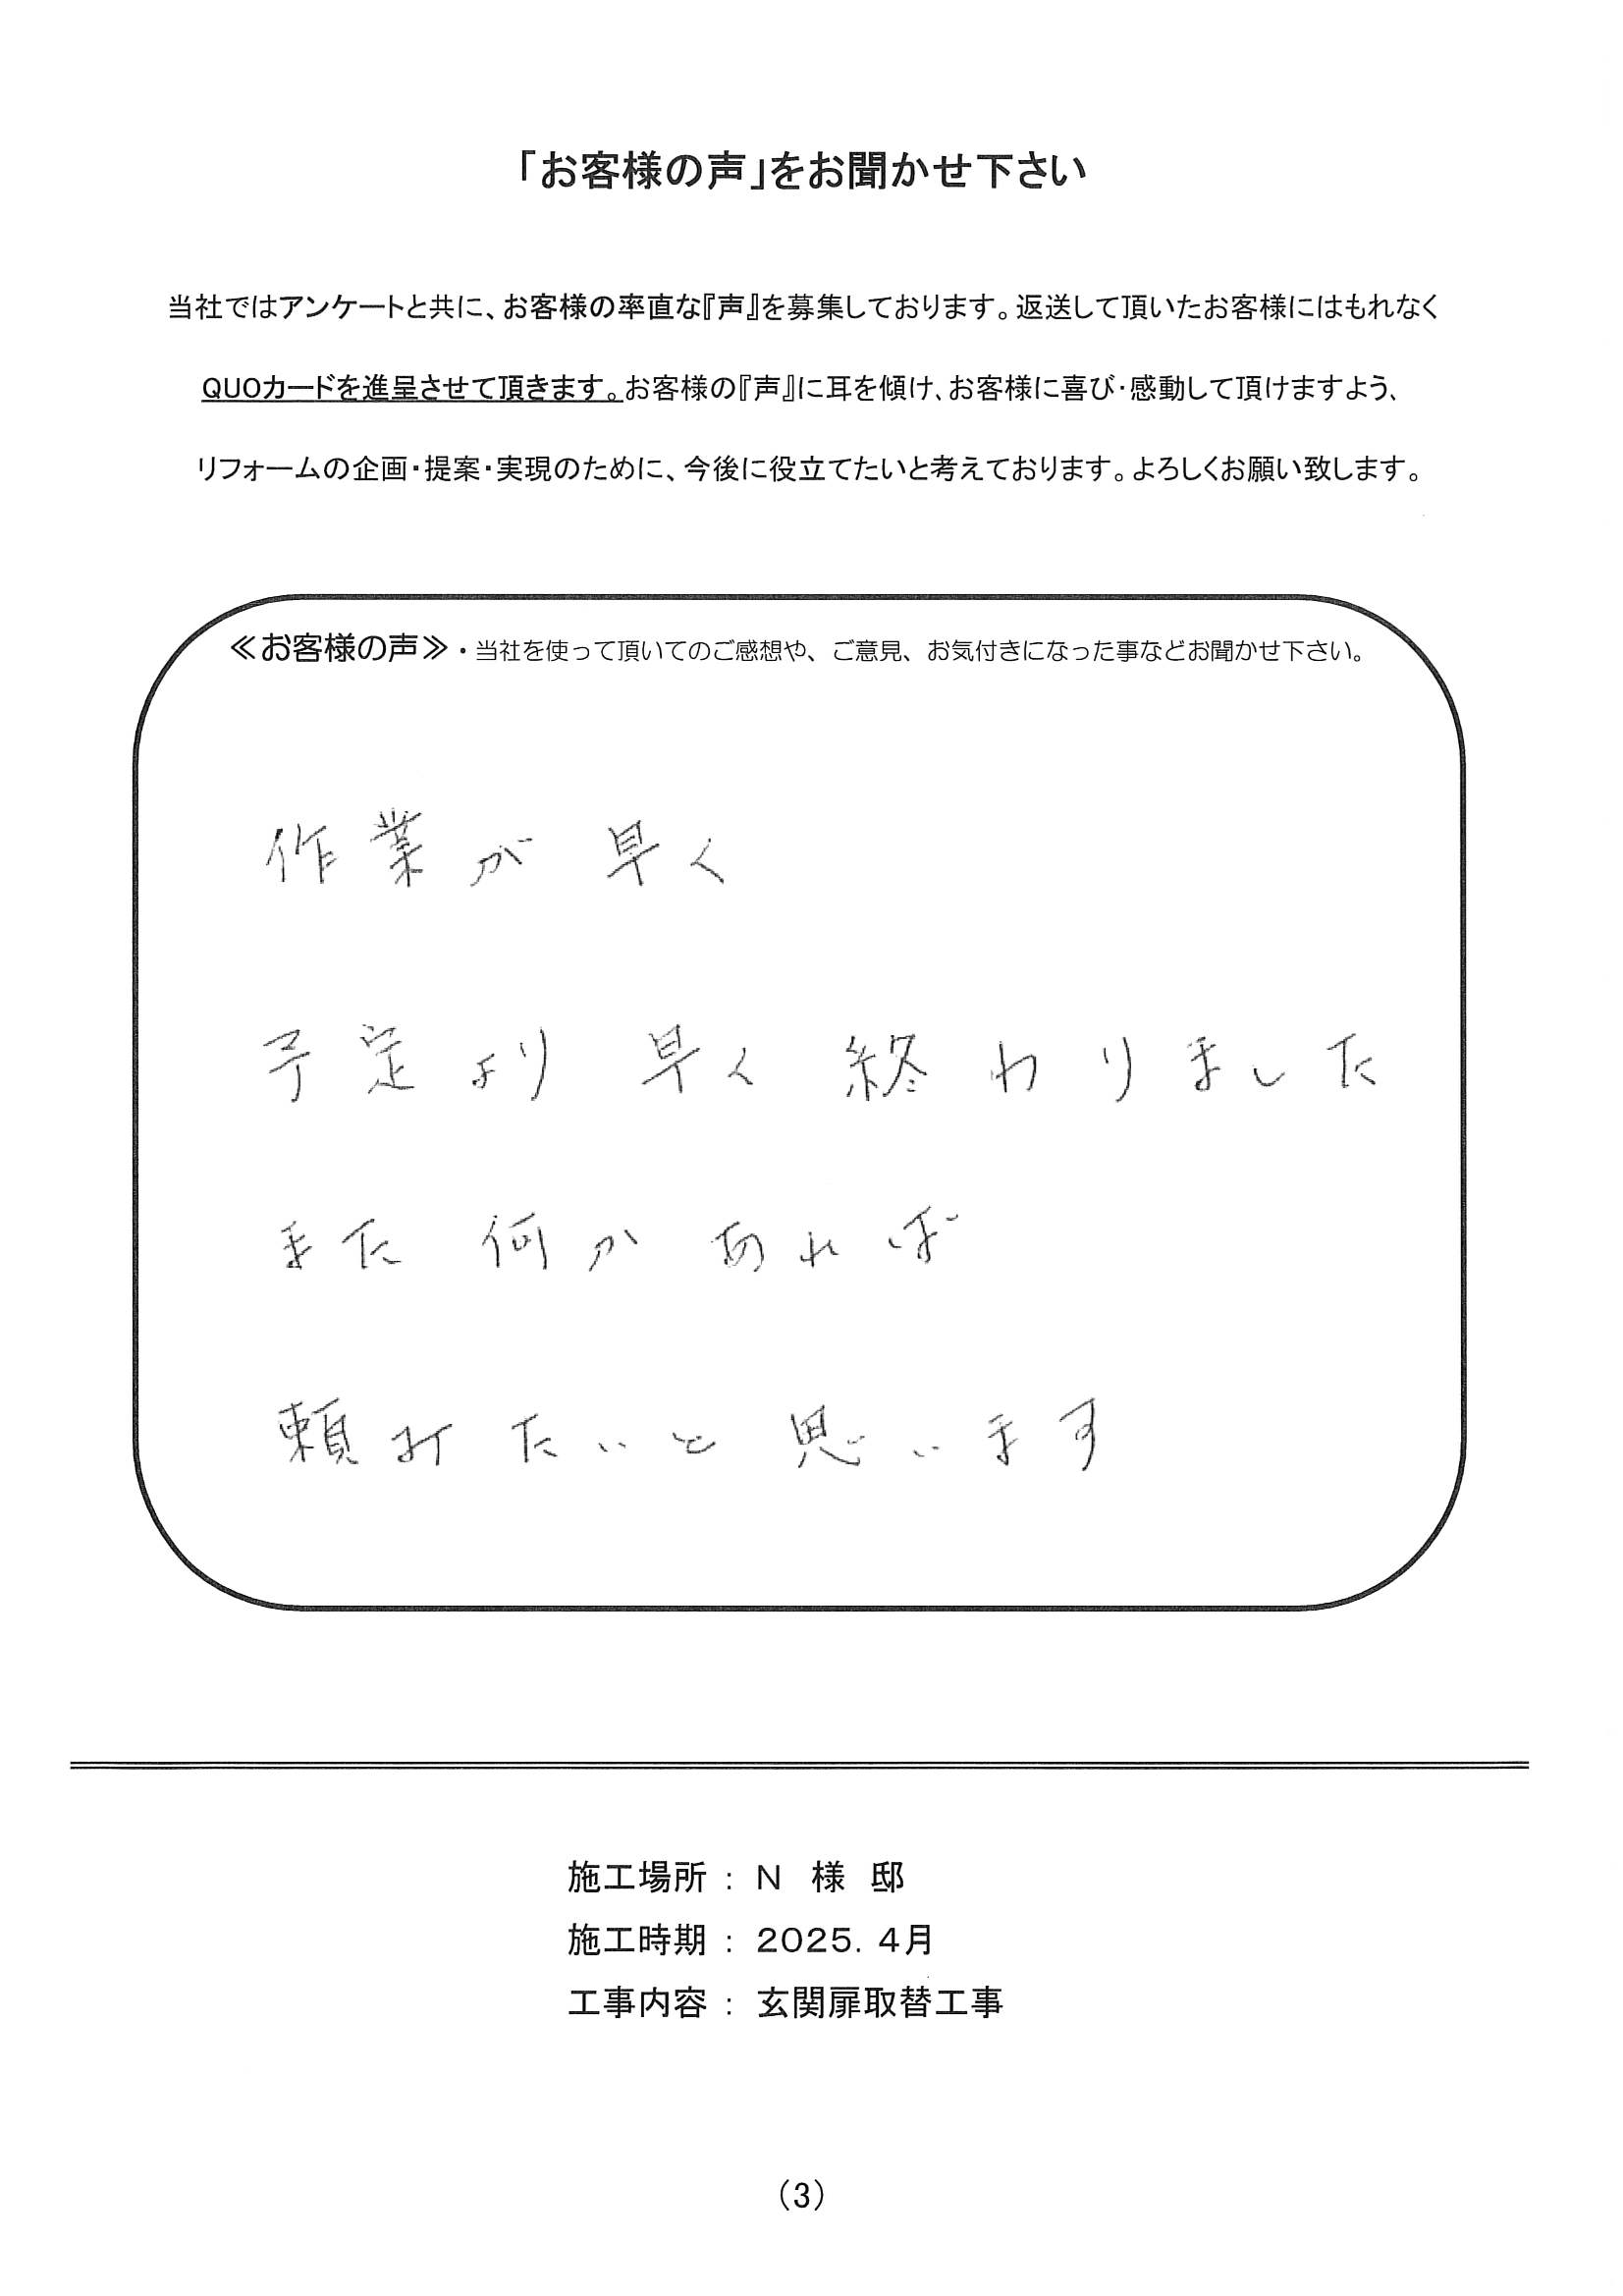 「お客様の声」をお聞かせ下さい
当社ではアンケートと共に、お客様の率直な『声』を募集しております。返送して頂いたお客様にはもれなく
QUOカードを進呈させて頂きます。お客様の『声』に耳を傾け、お客様に喜び・感動して頂けますよう、
リフォームの企画・提案・実現のために、今後に役立てたいと考えております。よろしくお願い致します。
≪お客様の声≫・当社を使って頂いてのご感想や、ご意見、お気付きになった事などお聞かせ下さい。
作業が早く
予定より早く終わりました
また何かあれば
頼みたいと思います
施工場所 : N 様 邸
施工時期 : 2025. 4月
工事内容 : 玄関扉取替工事
(3)